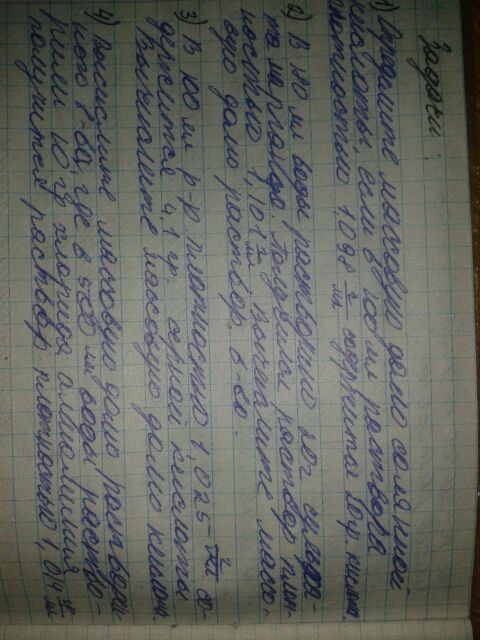 Задачи:
1) Определите массовую долю соляной
кислоты, если в 100 мл раствора
плотностью 1,098 г/мл содержится 20 г кислот.
2) В 80 мл воды растворено 20 г сульфа-
та натрия. Получился раствор плот-
ностью 1,101 г/мл вычислите массо-
вую долю раствор. в-ва.
3) В 100 мл р-р плотностью 1,025 г/мл со-
держится 4,1 гр. серной кислоты
Вычислите массовую долю кислоты
4) Вычислите массовую долю растворен-
ного в-ва, где в 500 мл воды раство-
рили 10 гр хлорида алюминия
получится раствор плотностью 1,04 г/мл